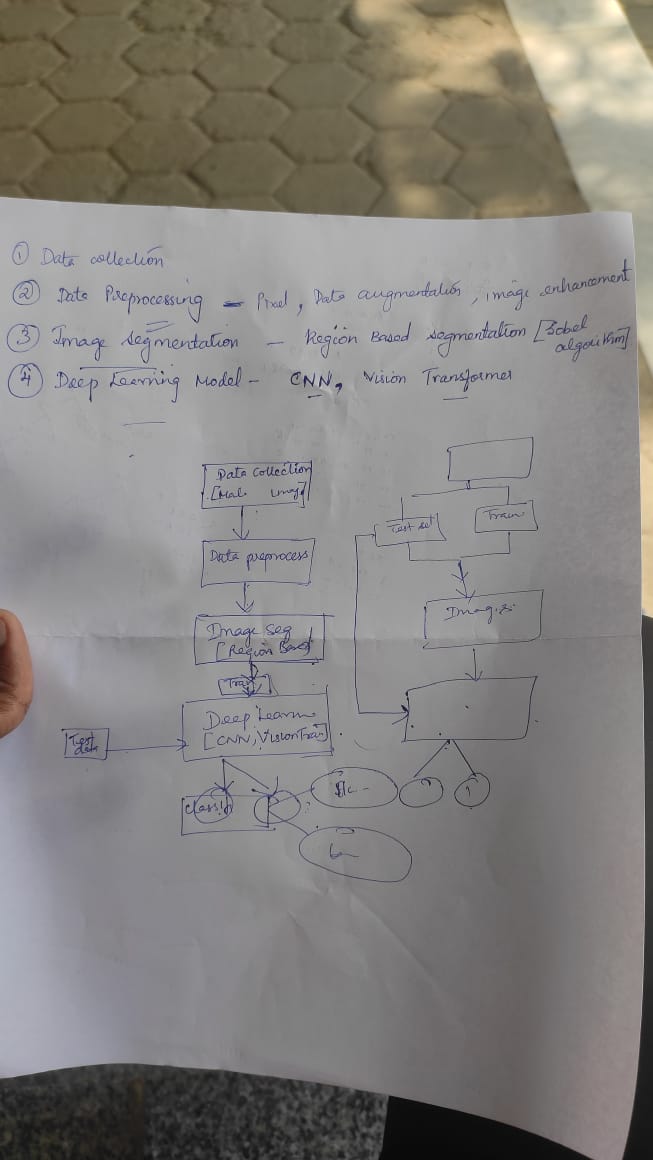 ① Data collection
② Data Preprocessing - Pixel, Data augmentation, image enhancement
③ Image Segmentation - Region Based segmentation [Sobel
algorithm]
④ Deep Learning Model - CNN, Vision Transformer
Data Collection
Data preprocess
Image Seg
[Region Based
Train
Deep Learn
[CNN, VisionTra]
Test
data
Classif
Test set
Train